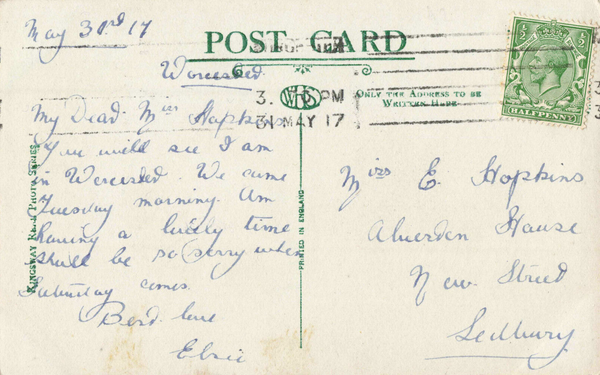 May 30rd 17
POST CARD
Worcested
3. PM
31 MAY 17
ONLY THE ADDRESS TO BE
WRITTEN HERE.
½ ½
HALFPENNY
My Dear Miss Hopkins
You will see I am
in Worcested. We came
Tuesday morning. Am
having a lively time
shall be so sorry when
Saturday comes.
Best love
Elsie
KINGSWAY REAL PHOTO SERIES
PRINTED IN ENGLAND
Miss E. Hopkins
House
New Street
Ledbury